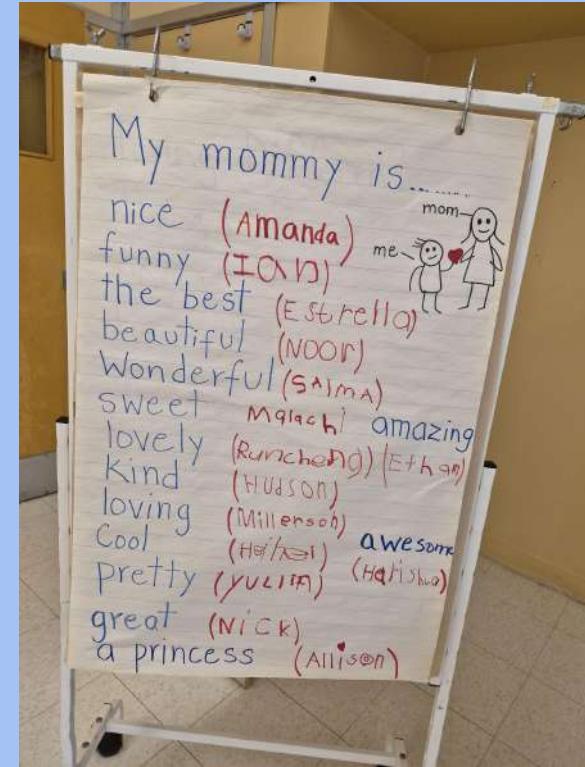 My mommy is.........
mom
nice (Amanda)
me
funny (Ian)
the best (Estrella)
beautiful (NOOr)
Wonderful (SAlmA)
sweet Malachi amazing
lovely (Runcheng) (Ethan)
Kind (HUdson)
loving (Millerson)
awesome
Cool
pretty (YULIIA)
great (NiCK)
a princess (Allison)